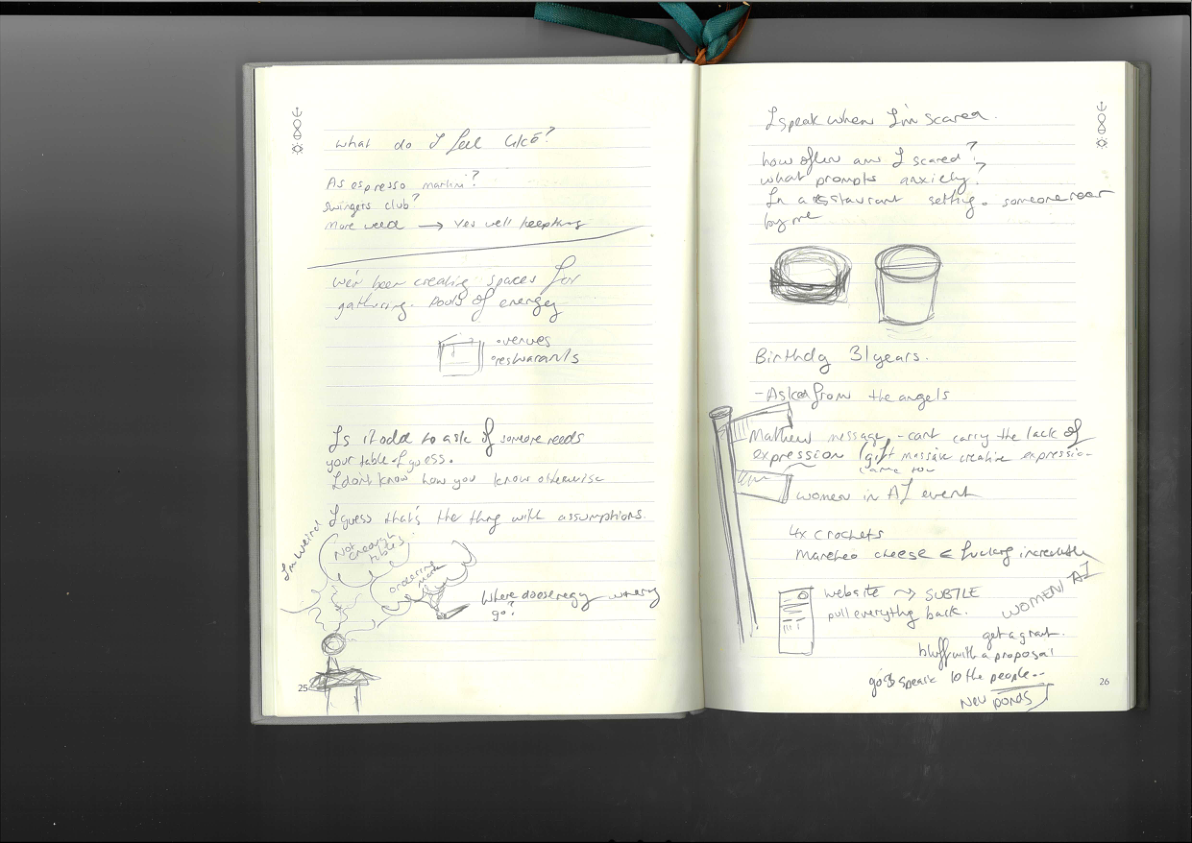 what do I feel like?
As espresso martini?
swingers club?
More weed → yes well keep this
we've been creating spaces for
gathering. Pools of energy
• venues
• restaurants
Is it odd to ask if someone needs
your table I guess.
I don't know how you know otherwise
I guess that's the thing with assumptions.
I'm weird
Not enough
tables
ordering
more
Where does energy
go?
25
I speak when I'm scared.
how often am I scared?
what prompts anxiety?
In a restaurant setting. someone near
by me
Birthdy 31 years.
- Asked from the angels
Mathew message - cant carry the lack of
expression (gift massive creative expression
came
women in AI event
4x crochets
cheese < fucking incredible
website → SUBTLE
pull everythg back.
WOMEN AI
get a grant.
bluff with a proposal
go & speak to the people--
New ponds
26